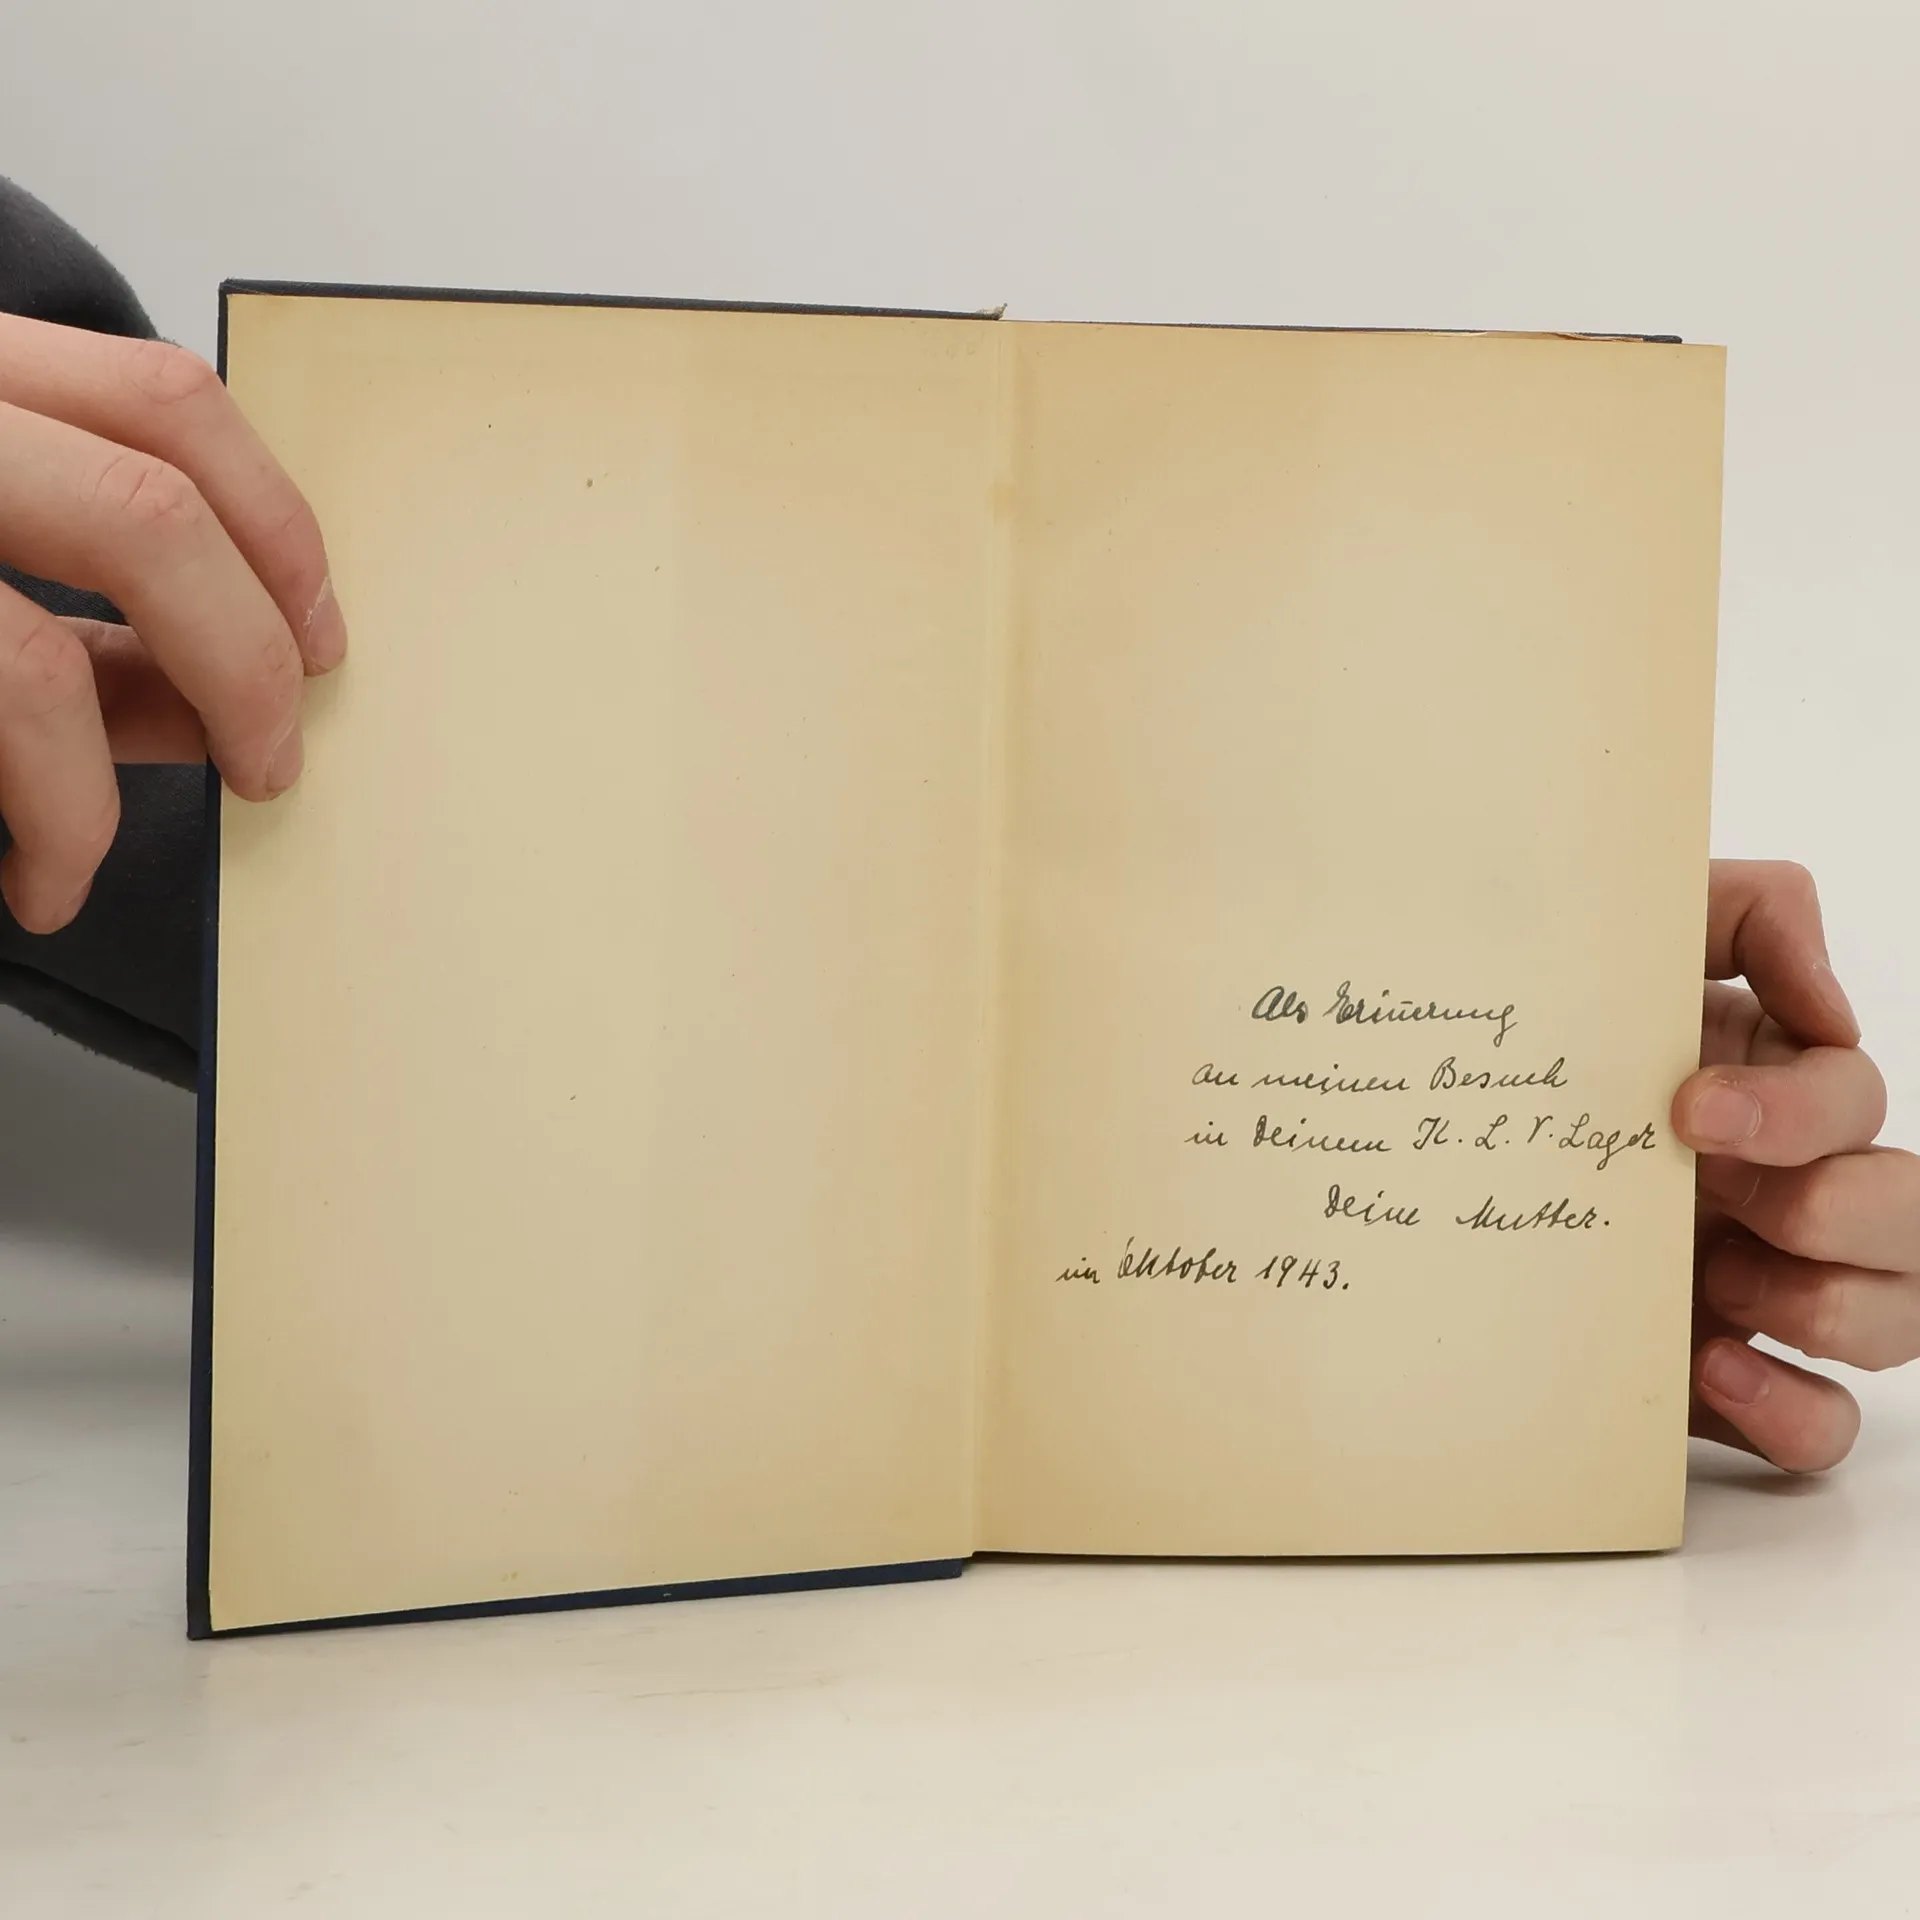 Als Erin̄erung
an meinen Besuch
in Deinem K. L. V. Lager
Deine Mutter.
im Oktober 1943.